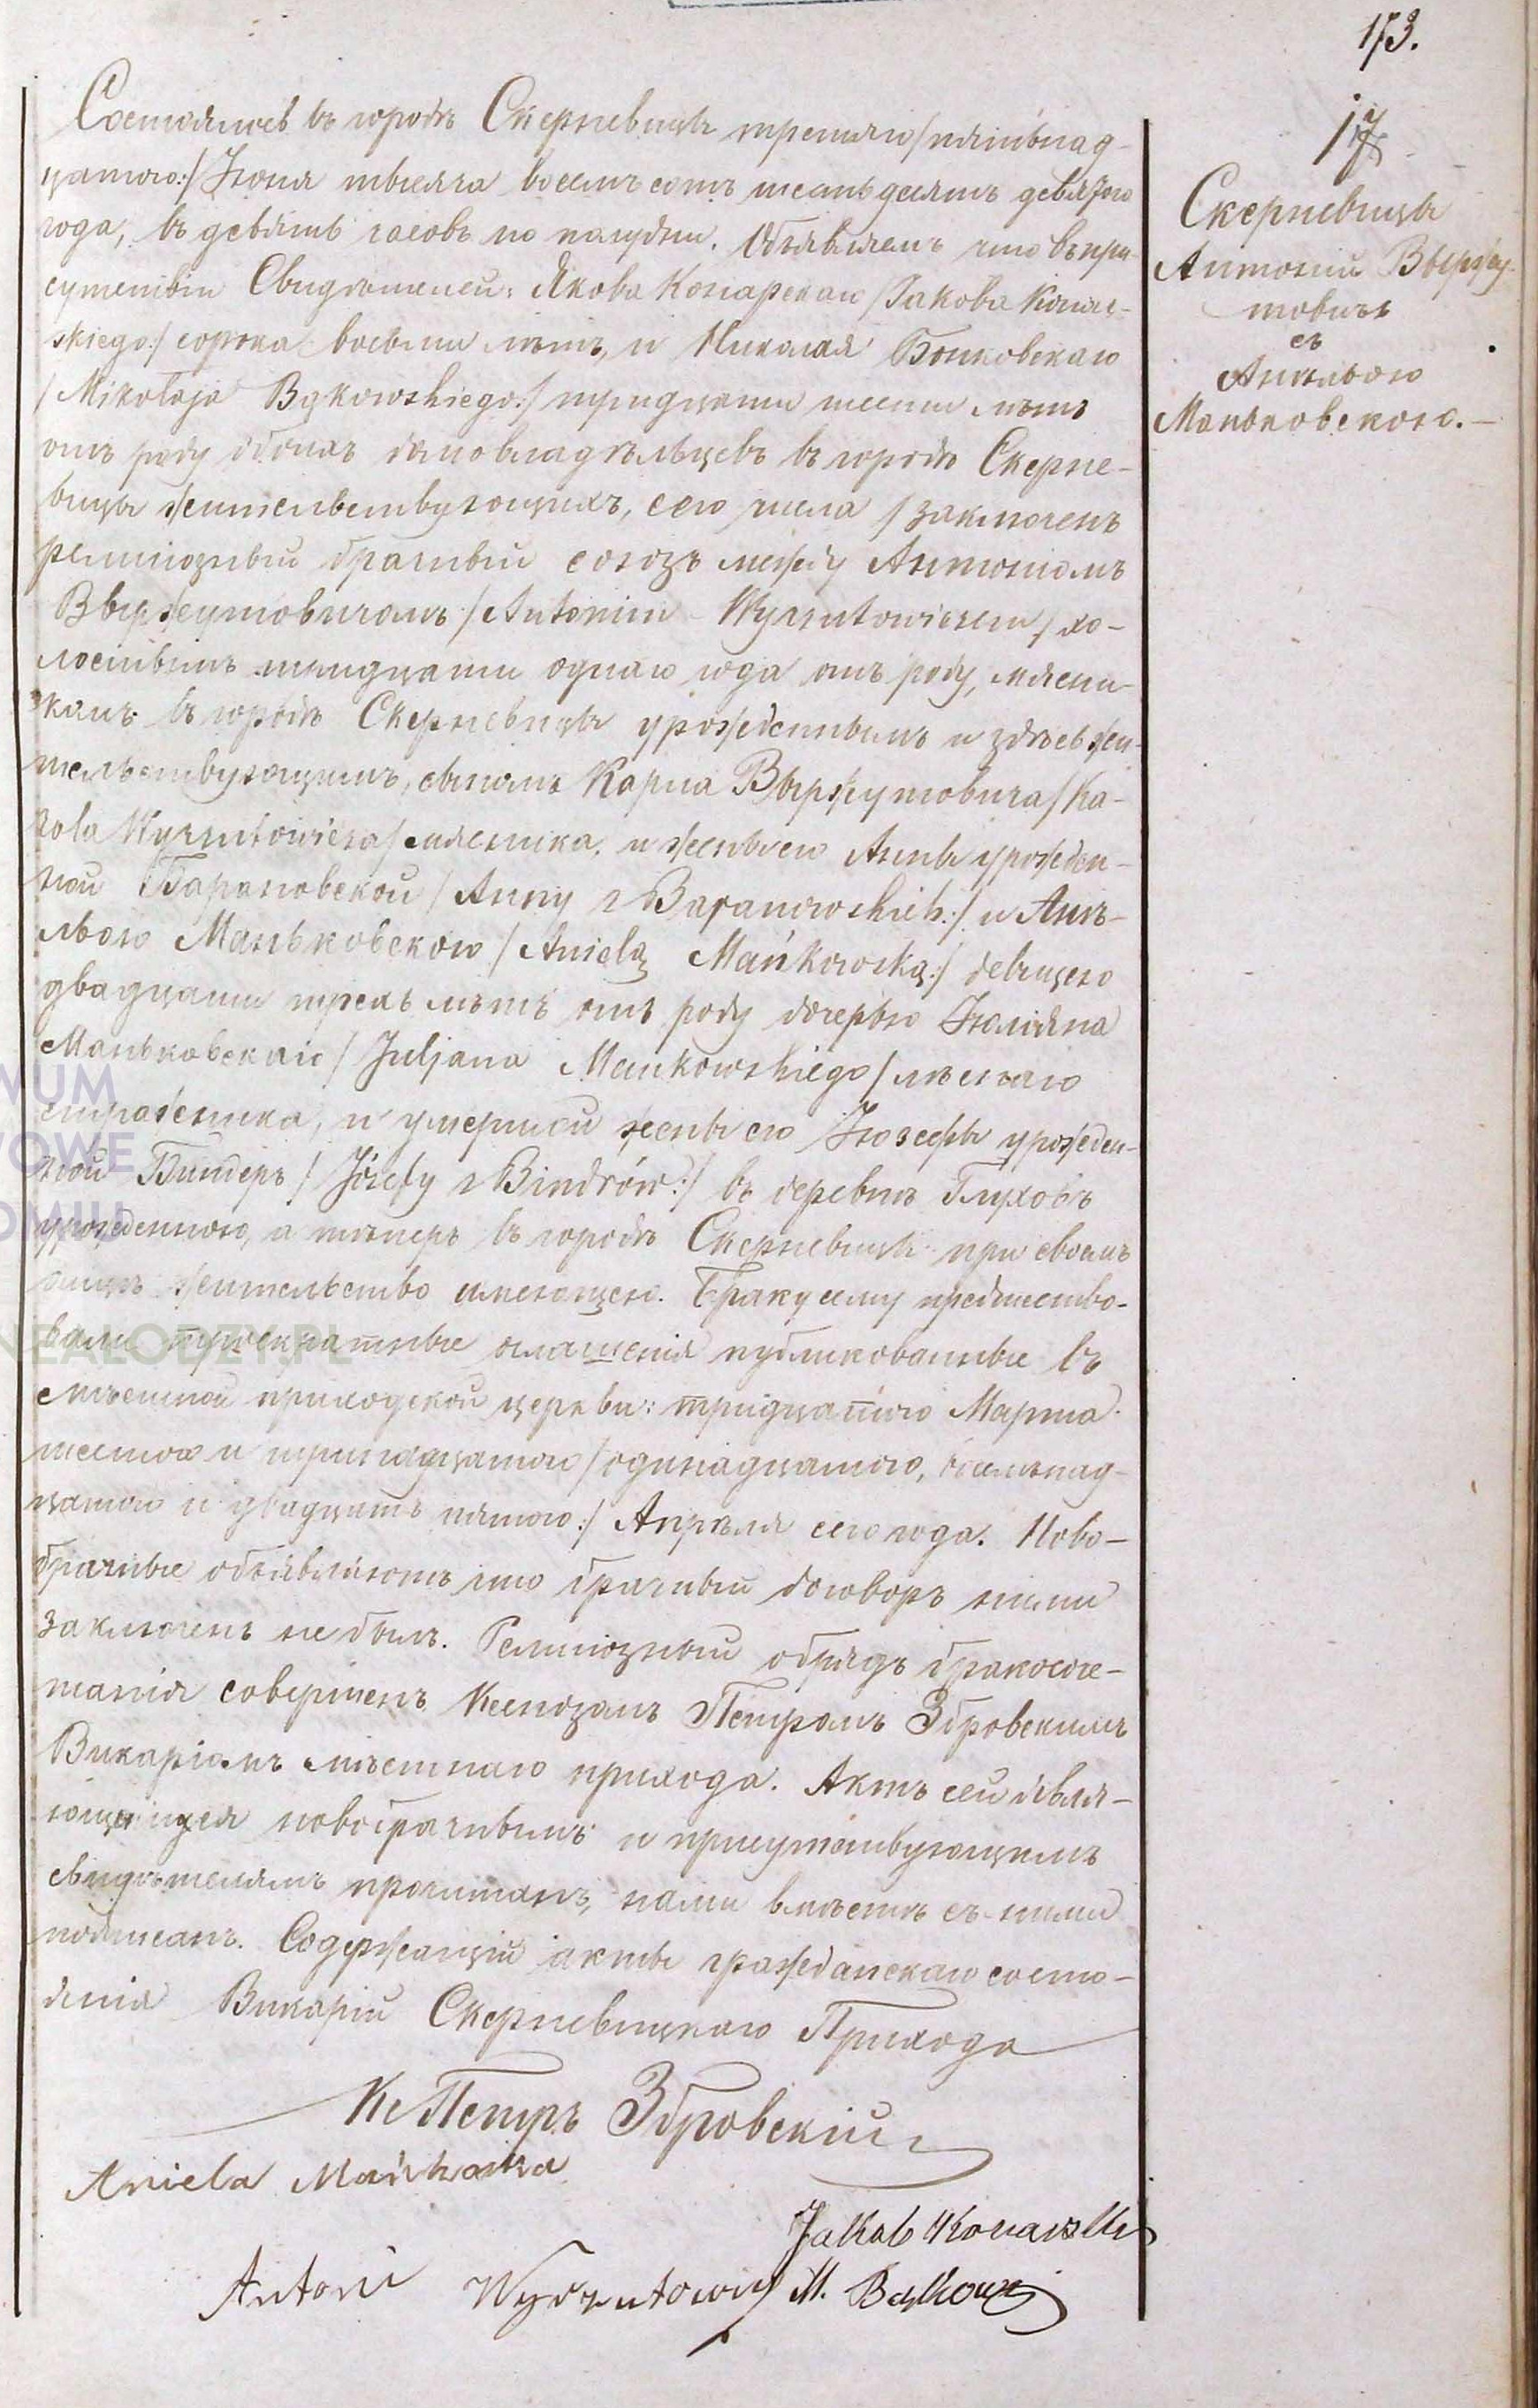 173.
17
Скерневицы
Антоній Выржу-
товичъ
съ
Анѣлью
Маньковскою.—
Состоялось въ городѣ Скерневицы третьяго /пятьнад-
цатого:/ Іюня тысяча восемь сотъ шесть десятъ девятого
года, въ девять часовъ по полудни. Объявляемъ что въ при-
сутствіи Свидѣтелей: Якова Конарскаго /Jakoba Konar-
skiego:/ сорока восьми лѣтъ, и Николая Бонковскаго
/Mikołaja Bąkowskiego:/ тридцати шести лѣтъ
отъ роду обоихъ домовладѣльцевъ въ городѣ Скерне-
вицы жительствующихъ, сего числа заключенъ
религіозный брачный союзъ между Антоніомъ
Выржутовичомъ /Antonim Wyrzutowiczem/ хо-
лостымъ тридцати одного года отъ роду, мясни-
комъ въ городѣ Скерневицы урожденнымъ и здѣсь жи-
тельствующимъ, сыномъ Карла Выржутовича /Ka-
rola Wyrzutowicza/ мясника, и жены его Анны урожден-
ной Барановской /Anny z Baranowskich:/ и Анѣ-
лью Маньковскою /Anielą Mańkowską:/ девицею
двадцати трехъ лѣтъ отъ роду дочерью Юліяна
Маньковскаго /Juljana Mańkowskiego/ лѣснаго
стражника, и умершой жены его Юзефы урожден-
ной Биндеръ /Józefy z Bindrów:/ въ деревнѣ Глуховъ
урожденною, а теперъ въ городѣ Скерневицы при своемъ
отцѣ жительство имеющею. Браку сему предшество-
вали троекратные оглашенія публикованные въ
мѣстной приходской церкви: тридцатого Марта
шестого и тринадцатого /одинадцатого, восемьнад-
цатого и двадцать пятого:/ Апрѣля сего года. Ново-
брачные объявляютъ что брачный договоръ ними
заключенъ не былъ. Религіозный обрядъ бракосоче-
танія совершенъ Ксендзомъ Петромъ Збровскимъ
Викаріомъ мѣстнаго прихода. Актъ сей явля-
ющимся новобрачнымъ и присутствующимъ
свидѣтелямъ прочитанъ, нами вмѣстѣ съ ними
подписанъ. Содержащій акты гражданскаго состо-
янія Викарій Скерневицкаго Прихода
Кс Петръ Збровскій
Aniela Mańkoska
Jakob Konarski
Antoni Wyrzutowicz M. Bąkowski